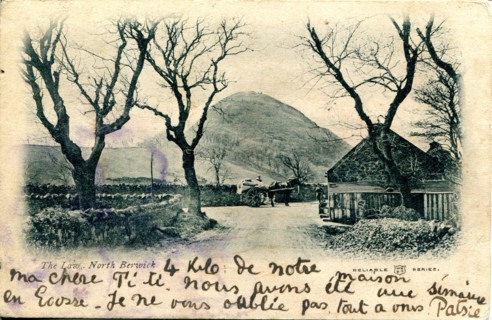 The Law, North Berwick
RELIABLE WR&S SERIES.
4 Kilo. de notre maison
ma chère Ti-ti. nous avons été une semaine
en Ecosse. Je ne vous oublie pas tout a vous Patsie